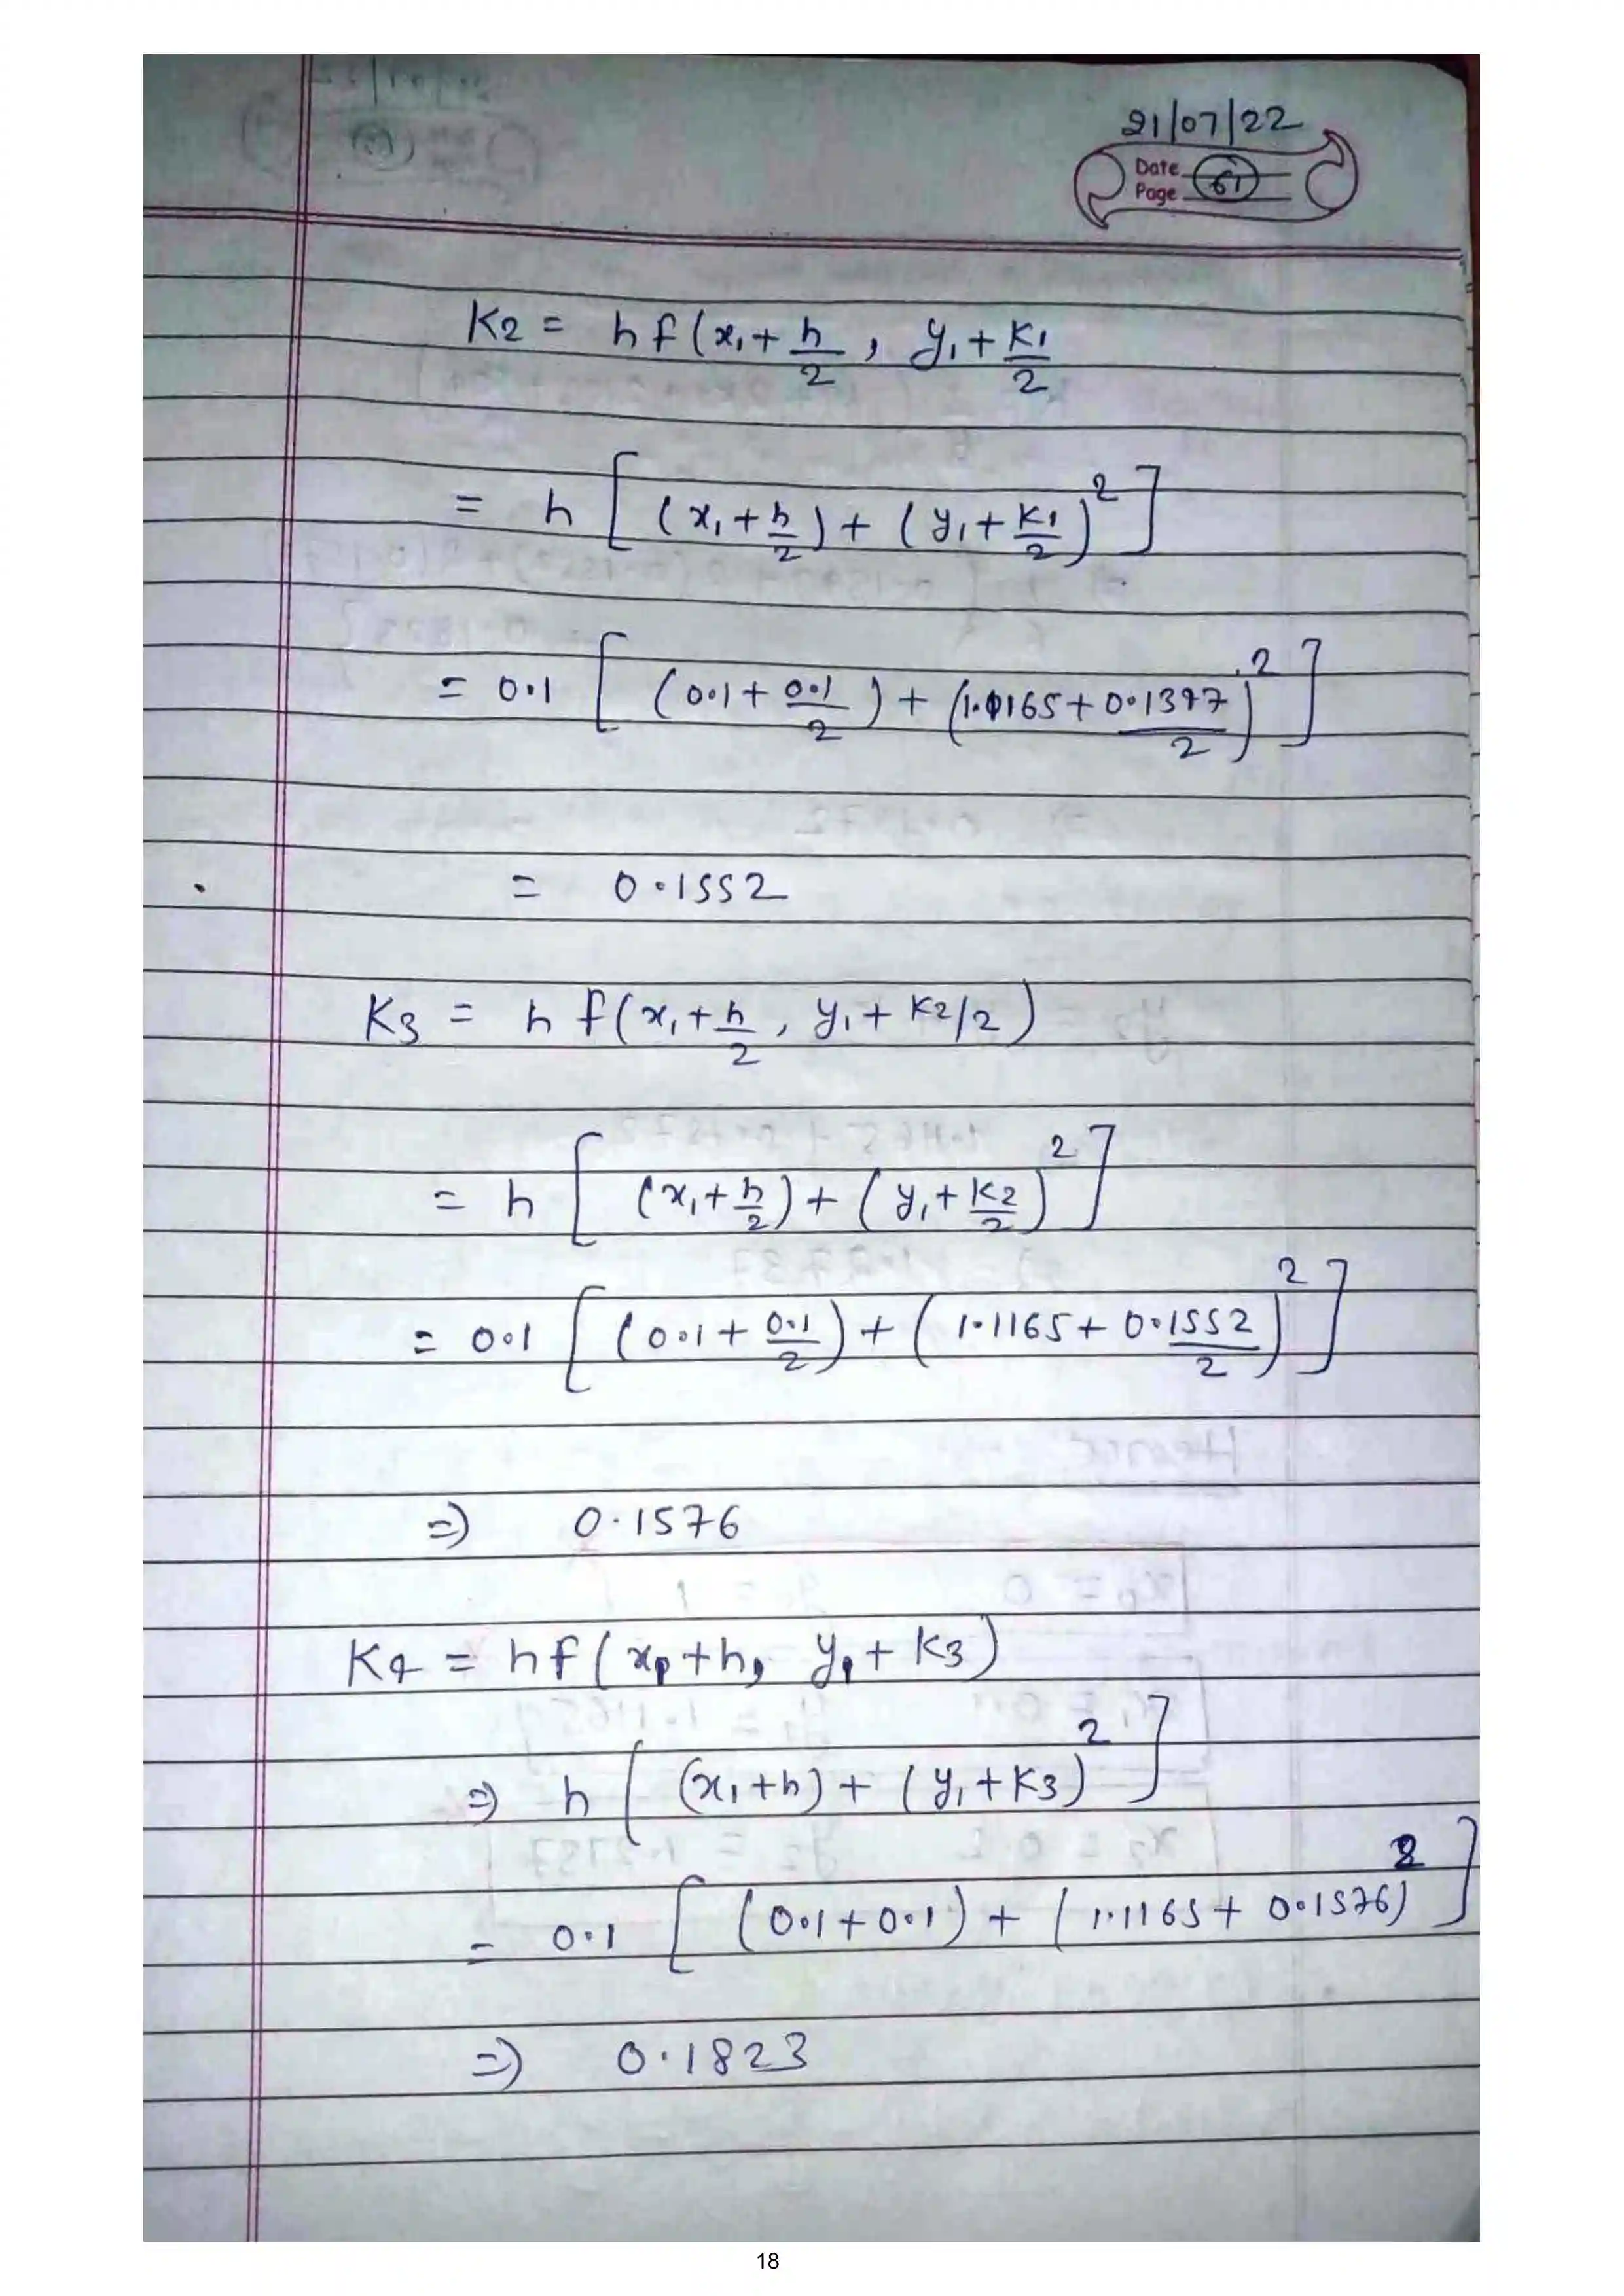 21/07/22
Date
Page 61
K2 = h f ( x1 + h/2 , y1 + K1/2
= h [ ( x1 + h/2 ) + ( y1 + K1/2 )^2 ]
= 0.1 [ ( 0.1 + 0.1/2 ) + ( 1.1165 + 0.1397/2 )^2 ]
= 0.1552
K3 = h f ( x1 + h/2 , y1 + K2/2 )
= h [ ( x1 + h/2 ) + ( y1 + K2/2 )^2 ]
= 0.1 [ ( 0.1 + 0.1/2 ) + ( 1.1165 + 0.1552/2 )^2 ]
⇒ 0.1576
K4 = h f ( x1 + h, y1 + K3 )
⇒ h [ ( x1 + h ) + ( y1 + K3 )^2 ]
= 0.1 [ ( 0.1 + 0.1 ) + ( 1.1165 + 0.1576 )^2 ]
⇒ 0.1823
18